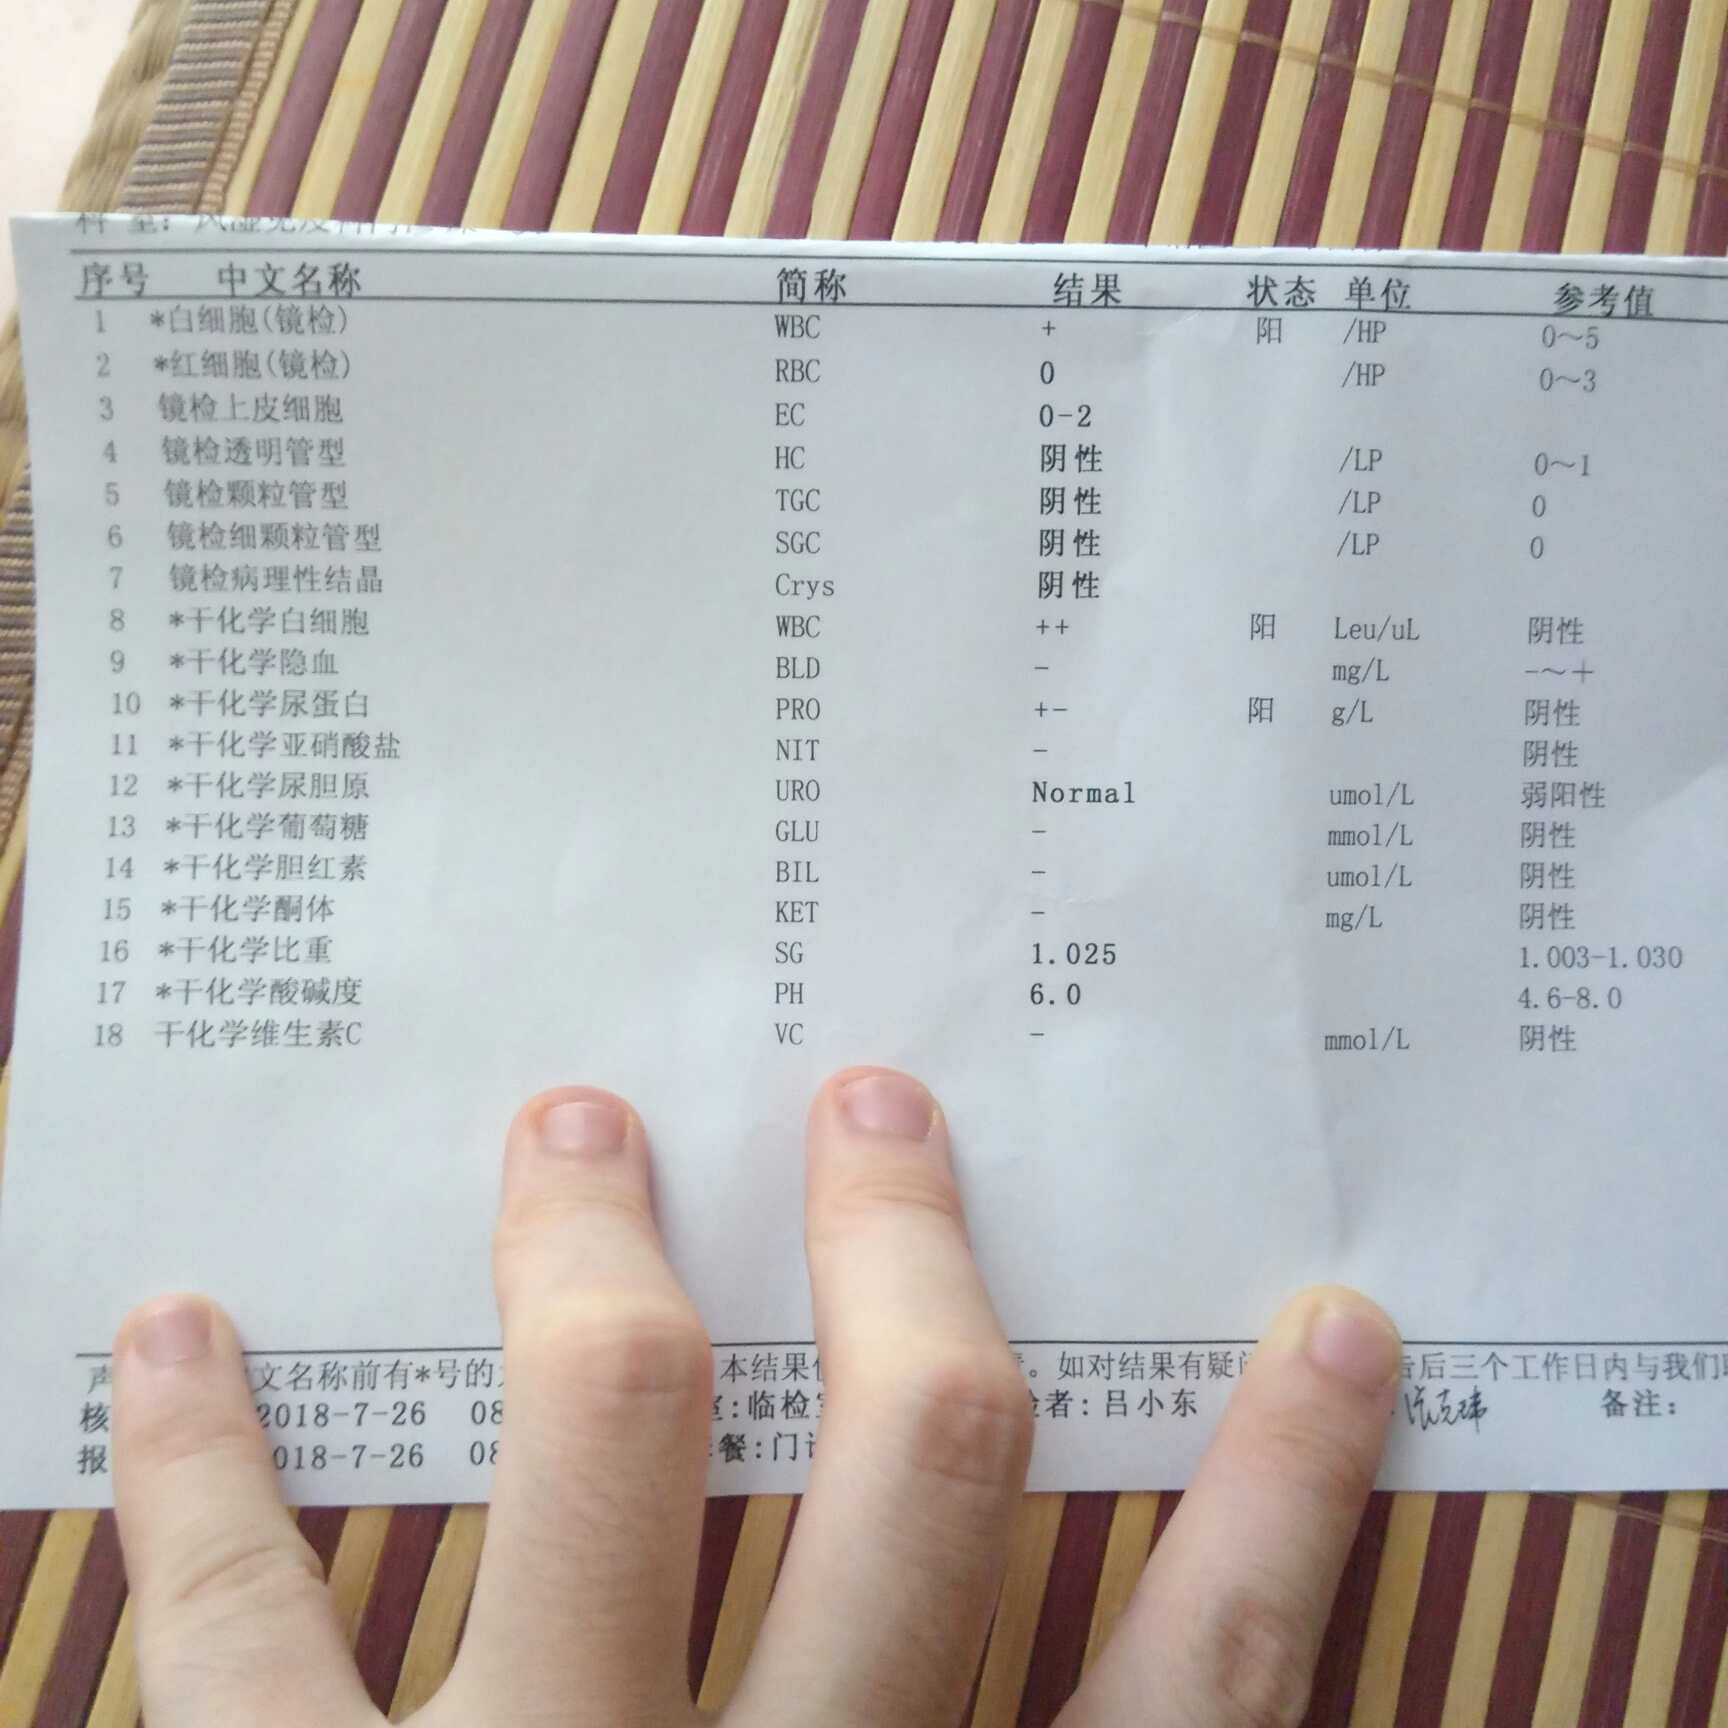 科室: 风湿免疫科
序号 中文名称 简称 结果 状态 单位 参考值
1 *白细胞(镜检) WBC + 阳 /HP 0～5
2 *红细胞(镜检) RBC 0 /HP 0～3
3 镜检上皮细胞 EC 0-2
4 镜检透明管型 HC 阴性 /LP 0～1
5 镜检颗粒管型 TGC 阴性 /LP 0
6 镜检细颗粒管型 SGC 阴性 /LP 0
7 镜检病理性结晶 Crys 阴性
8 *干化学白细胞 WBC ++ 阳 Leu/uL 阴性
9 *干化学隐血 BLD - mg/L -～+
10 *干化学尿蛋白 PRO +- 阳 g/L 阴性
11 *干化学亚硝酸盐 NIT - 阴性
12 *干化学尿胆原 URO Normal umol/L 弱阳性
13 *干化学葡萄糖 GLU - mmol/L 阴性
14 *干化学胆红素 BIL - umol/L 阴性
15 *干化学酮体 KET - mg/L 阴性
16 *干化学比重 SG 1.025 1.003-1.030
17 *干化学酸碱度 PH 6.0 4.6-8.0
18 干化学维生素C VC - mmol/L 阴性
声 文名称前有*号的 本结果 。如对结果有疑 告后三个工作日内与我们
核 2018-7-26 08 :临检 者: 吕小东 备注:
报 018-7-26 08 餐:门